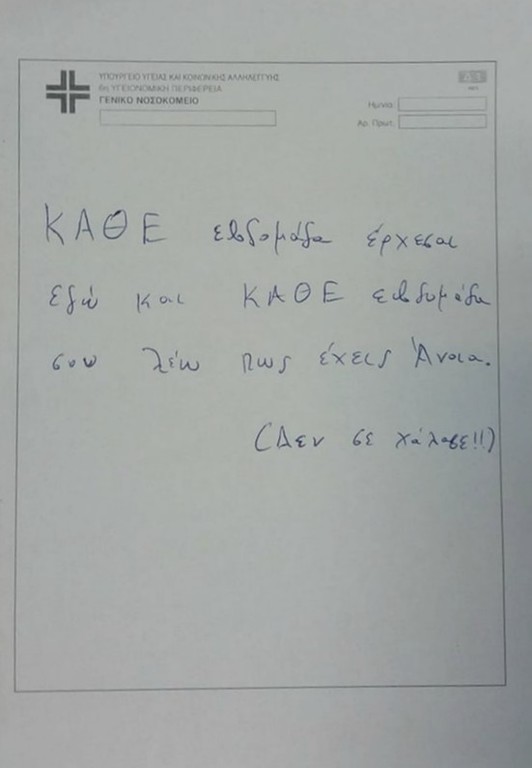 ΥΠΟΥΡΓΕΙΟ ΥΓΕΙΑΣ ΚΑΙ ΚΟΙΝΩΝΙΚΗΣ ΑΛΛΗΛΕΓΓΥΗΣ
6η ΥΓΕΙΟΝΟΜΙΚΗ ΠΕΡΙΦΕΡΕΙΑ
ΓΕΝΙΚΟ ΝΟΣΟΚΟΜΕΙΟ
Ημ/νία:
Αρ. Πρωτ.:
ΚΑΘΕ εβδομάδα έρχεσαι
εδώ και ΚΑΘΕ εβδομάδα
σου λέω πως έχεις Άνοια.
(Δεν σε χάλασε!!)